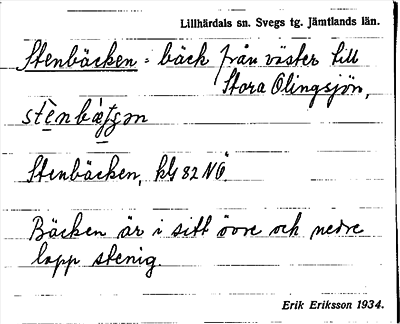 Lillhärdals sn. Svegs tg. Jämtlands län.
Stenbäcken = bäck från väster till
Stora Olingsjön,
Stenbäcken, kbl 82 NÖ.
Bäcken är i sitt övre och nedre
lopp stenig.
Erik Eriksson 1934.